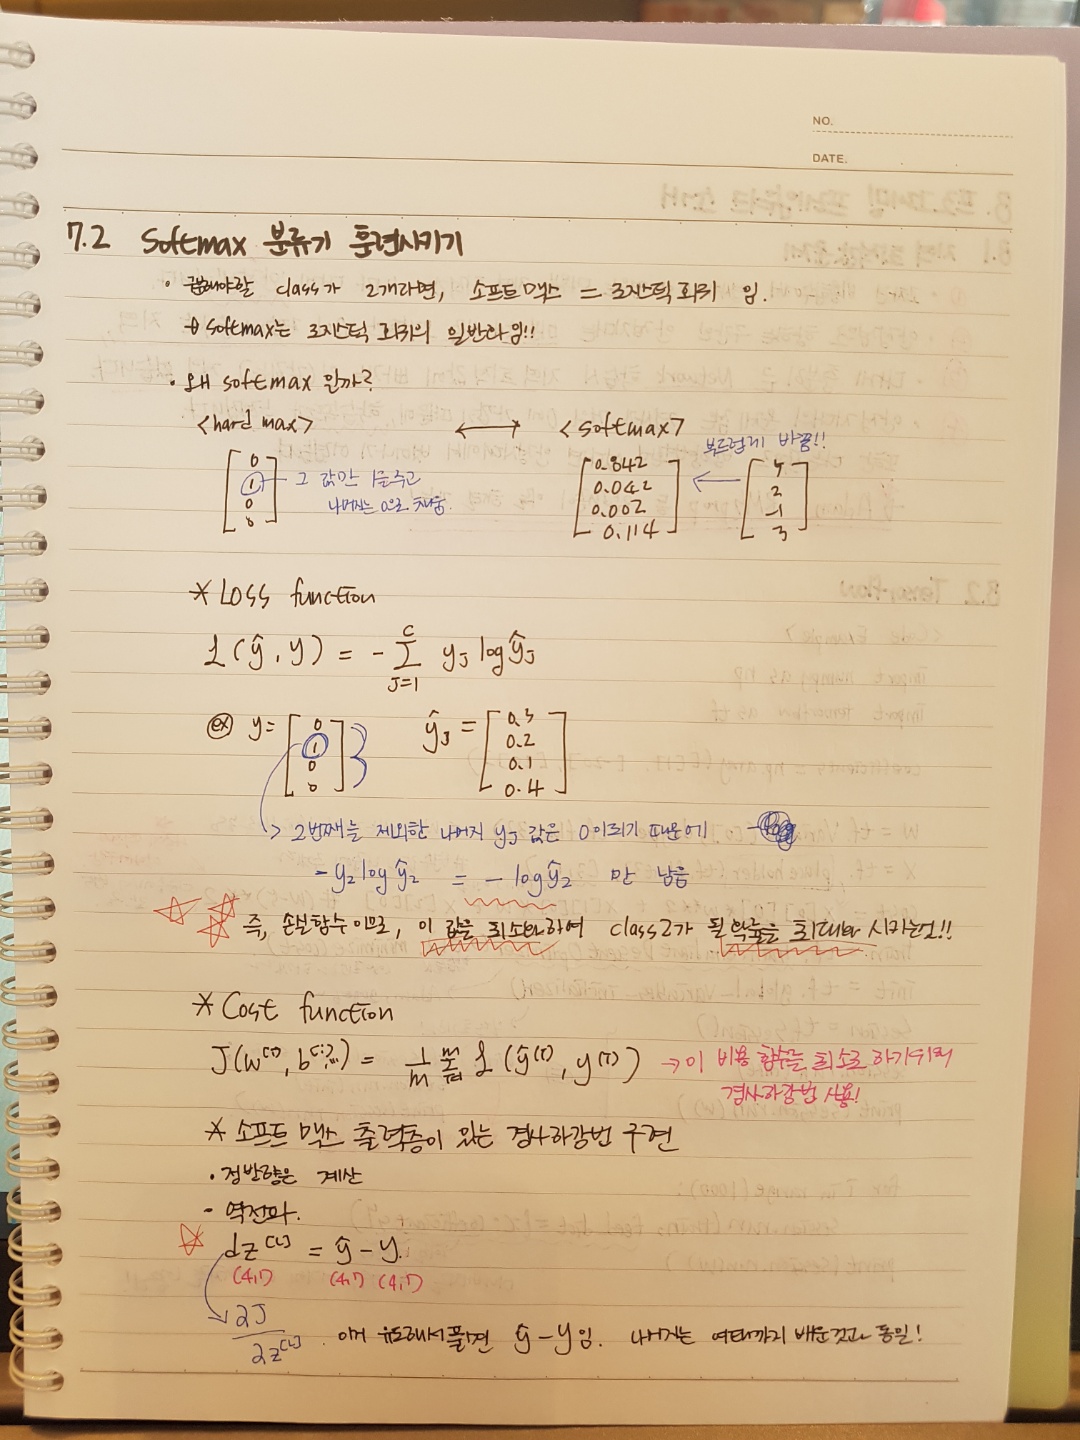 NO.
DATE.
7.2 Softmax 분류기 훈련시키기
· 구해야할 class가 2개라면, 소프트맥스 = 로지스틱 회귀 임.
→ softmax는 로지스틱 회귀의 일반화임!!
· 왜 softmax 일까?
<hard max> ⟷ <softmax>
부드럽게 바꿈!!
[0 1 0 0] 그 값만 1을주고
나머지는 0으로 채움.
[0.842 0.042 0.002 0.114] ← [5 2 -1 3]
* Loss function
L(ŷ, y) = - Σ_{j=1}^{C} y_j log ŷ_j
ex) y = [0 1 0 0] ŷ_j = [0.3 0.2 0.1 0.4]
> 2번째를 제외한 나머지 y_j 값은 0이되기 때문에
- y₂ log ŷ₂ = - log ŷ₂ 만 남음
☆☆☆ 즉, 손실함수이므로, 이 값을 최소화하여 class2가 될 확률을 최대화 시키는것!!
* Cost function
J(w^[1], b^[1], ...) = 1/m Σ_{i=1}^{m} L(ŷ^(i), y^(i)) → 이 비용 함수를 최소로 하기위해
경사하강법 사용!
* 소프트 맥스 출력층이 있는 경사하강법 구현
· 정방향은 계산
- 역전파.
☆ dz^[L] = ŷ - y.
(4,1) (4,1) (4,1)
∂J/∂z^[L] . 이게 유도해서풀면 ŷ - y임. 나머지는 여태까지 배운것과 동일!